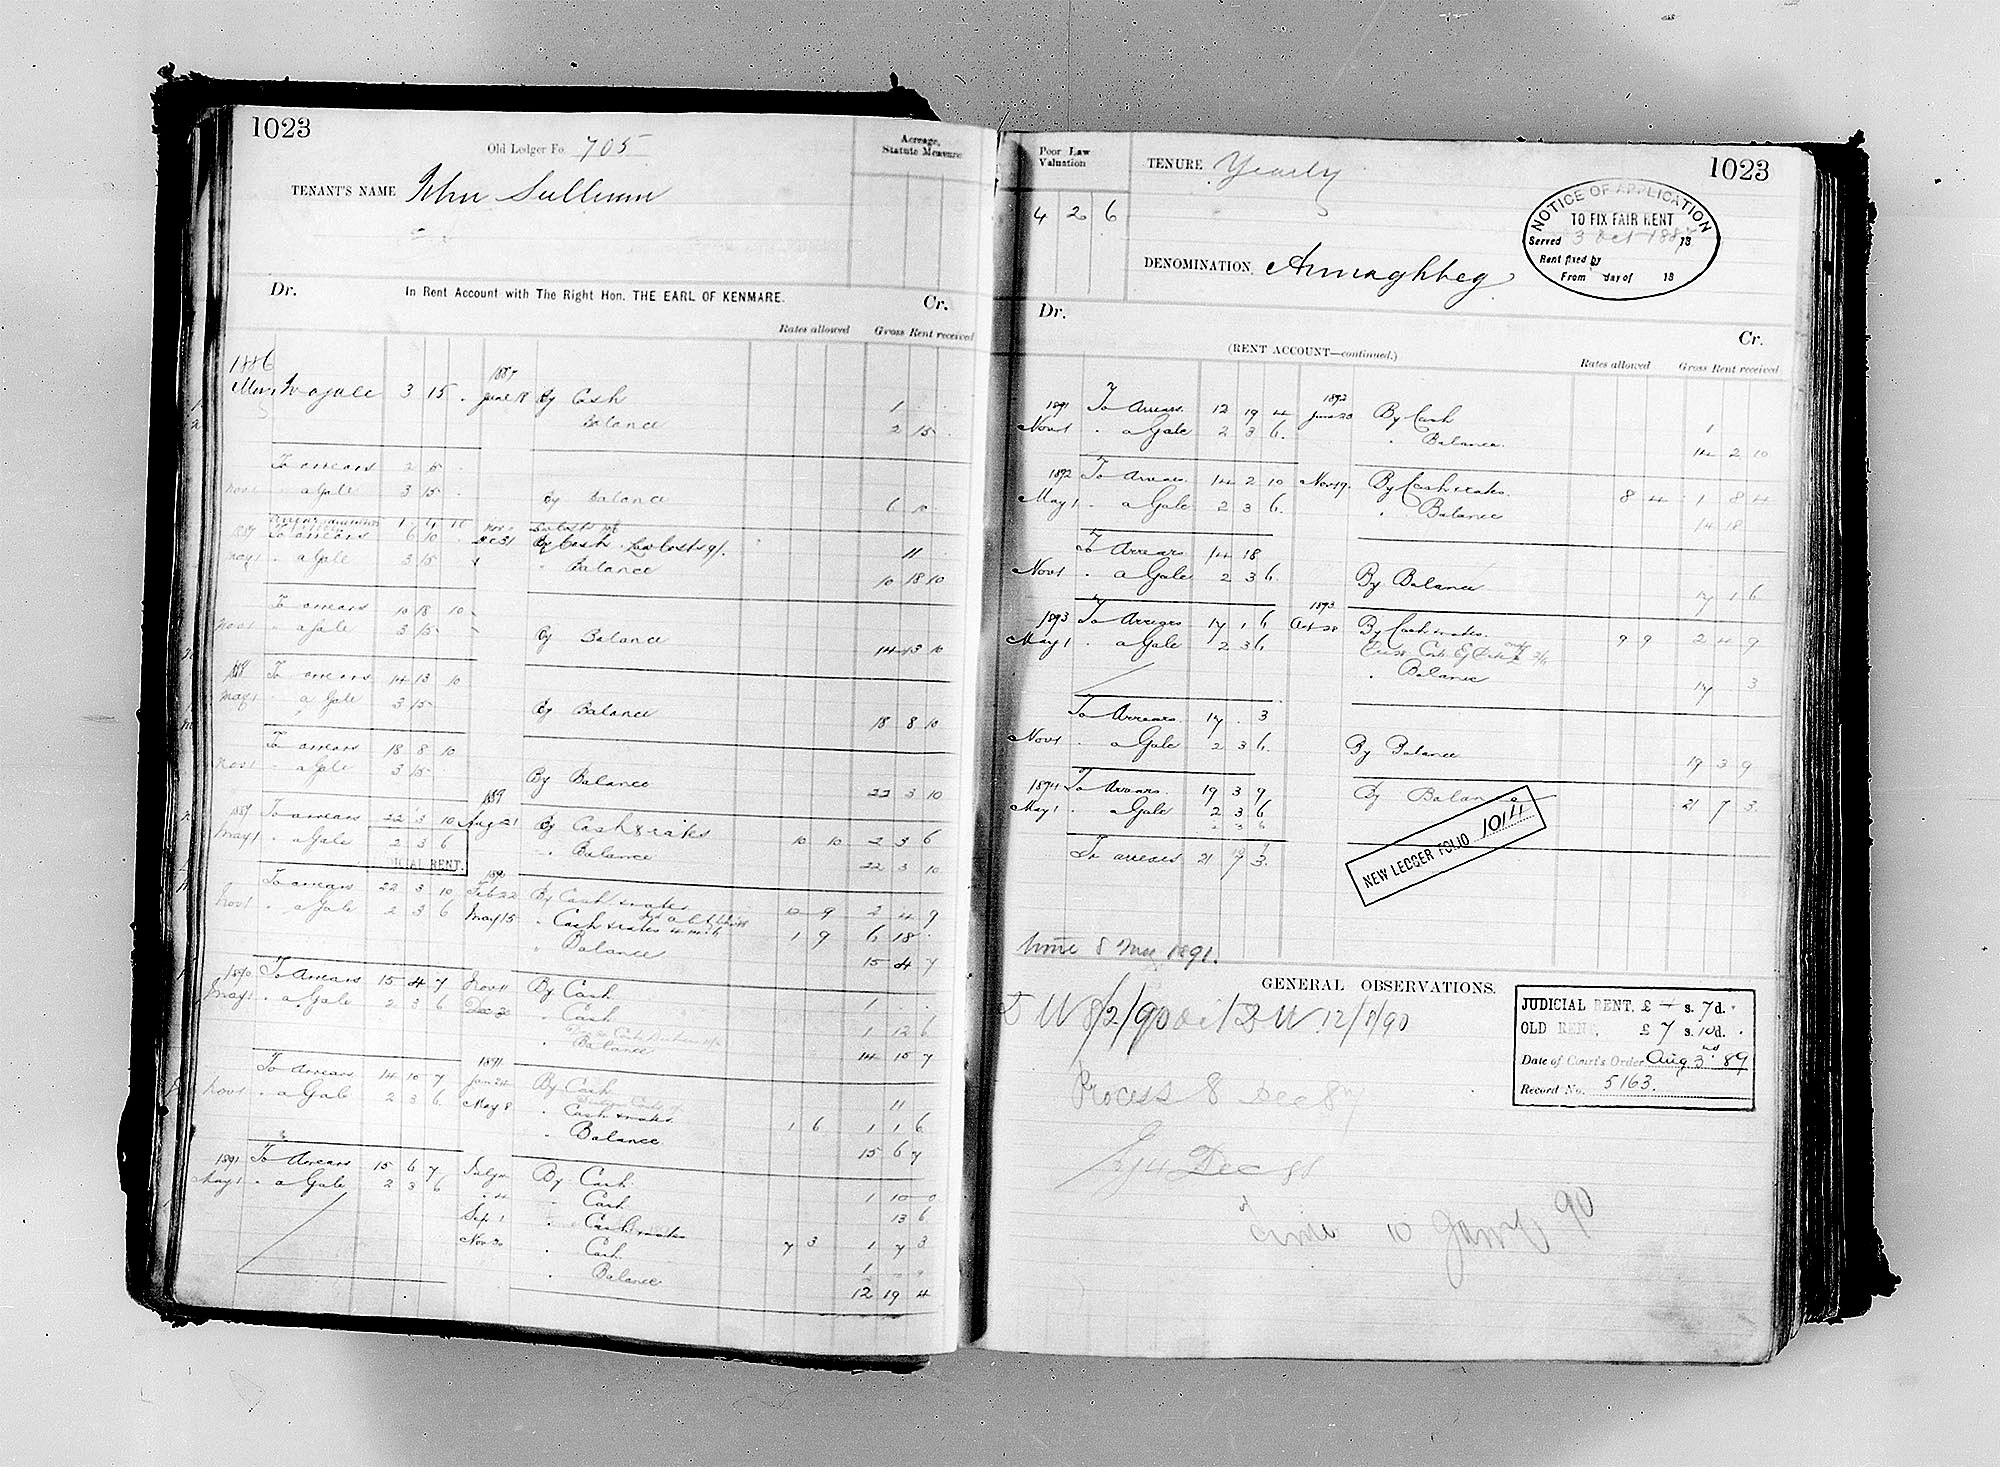 1023
Old Ledger Fo. 705
Acreage,
Statute Measure
TENANT'S NAME John Sullivan
Dr. In Rent Account with The Right Hon. THE EARL OF KENMARE. Cr.
Rates allowed Gross Rent received
1886 1887
a Gale 3 15 . June 18 By Cash 1 . .
Balance 2 15 .
To arrears 2 15 .
Nov 1 " a Gale 3 15 . By Balance 6 10 .
1887 To arrears 6 10 . Dec 31 By Cash . Law Costs 9/. 11 .
May 1 " a Gale 3 15 . " Balance 10 18 10
To arrears 10 18 10
Nov 1 " a Gale 3 15 - By Balance 14 13 10
1888 To arrears 14 13 10
May 1 " a Gale 3 15 - By Balance 18 8 10
To arrears 18 8 10
Nov 1 " a Gale 3 15 - By Balance 22 3 10
1889 To arrears 22 3 10 1889 Aug 21 By Cash & rates 10 10 2 3 6
May 1 " a Gale 2 3 6 " Balance 22 3 10
RENT.
To arrears 22 3 10 1890 Feb 22 By Cash & rates 10 9 2 4 9
Nov 1 " a Gale 2 3 6 May 15 " Cash & rates 1 9 6 18 .
" Balance 15 4 7
1890 To Arrears 15 4 7 Nov 11 By Cash 1 . .
May 1 " a Gale 2 3 6 Dec 30 " Cash 1 12 6
" Balance 14 15 7
To Arrears 14 15 7 1891 Jan 24 By Cash 11
Nov 1 " a Gale 2 3 6 May 8 " Cash & rates 1 6 1 1 6
" Balance 15 6 7
1891 To Arrears 15 6 7 By Cash 1 10 0
May 1 " a Gale 2 3 6 " 4 " Cash 13 6
Sep. 1 " Cash & rates 7 3 1 7 3
Nov 30 " Cash 1 . .
" Balance 12 19 4
Poor Law
Valuation
4 2 6
TENURE Yearly
1023
NOTICE OF APPLICATION
TO FIX FAIR RENT
Served 3 Oct 1887 18
Rent fixed by
From day of 18
DENOMINATION. Annaghbeg
Dr. Cr.
(RENT ACCOUNT—continued.)
Rates allowed Gross Rent received
1891 To Arrears 12 19 4 1892 June 20 By Cash 1
Nov 1 " a Gale 2 3 6 " Balance 14 2 10
1892 To Arrears 14 2 10 Nov 19. By Cash & rates. 8 4 1 8 4
May 1 " a Gale 2 3 6 " Balance 14 18
To Arrears 14 18
Nov 1 " a Gale 2 3 6 By Balance 17 1 6
1893 To Arrears 17 1 6 1893 Oct 28 By Cash & rates. 9 9 2 4 9
May 1 " a Gale 2 3 6
" Balance 17 3
To Arrears 17 . 3
Nov 1 " a Gale 2 3 6 By Balance 19 3 9
1894 To Arrears 19 3 9 By Balance 21 7 3
May 1 " a Gale 2 3 6
2 3 6
To arrears 21 7 3
NEW LEDGER FOLIO 1014
time 8 May 1891.
GENERAL OBSERVATIONS.
12/8/90
Process 8 Dec 87
Dec 88
time 10 90
JUDICIAL RENT, £ 4 s. 7 d.
OLD RENT, £ 7 s. 10 d.
Date of Court's Order Aug 3rd 89
Record No. 5163.